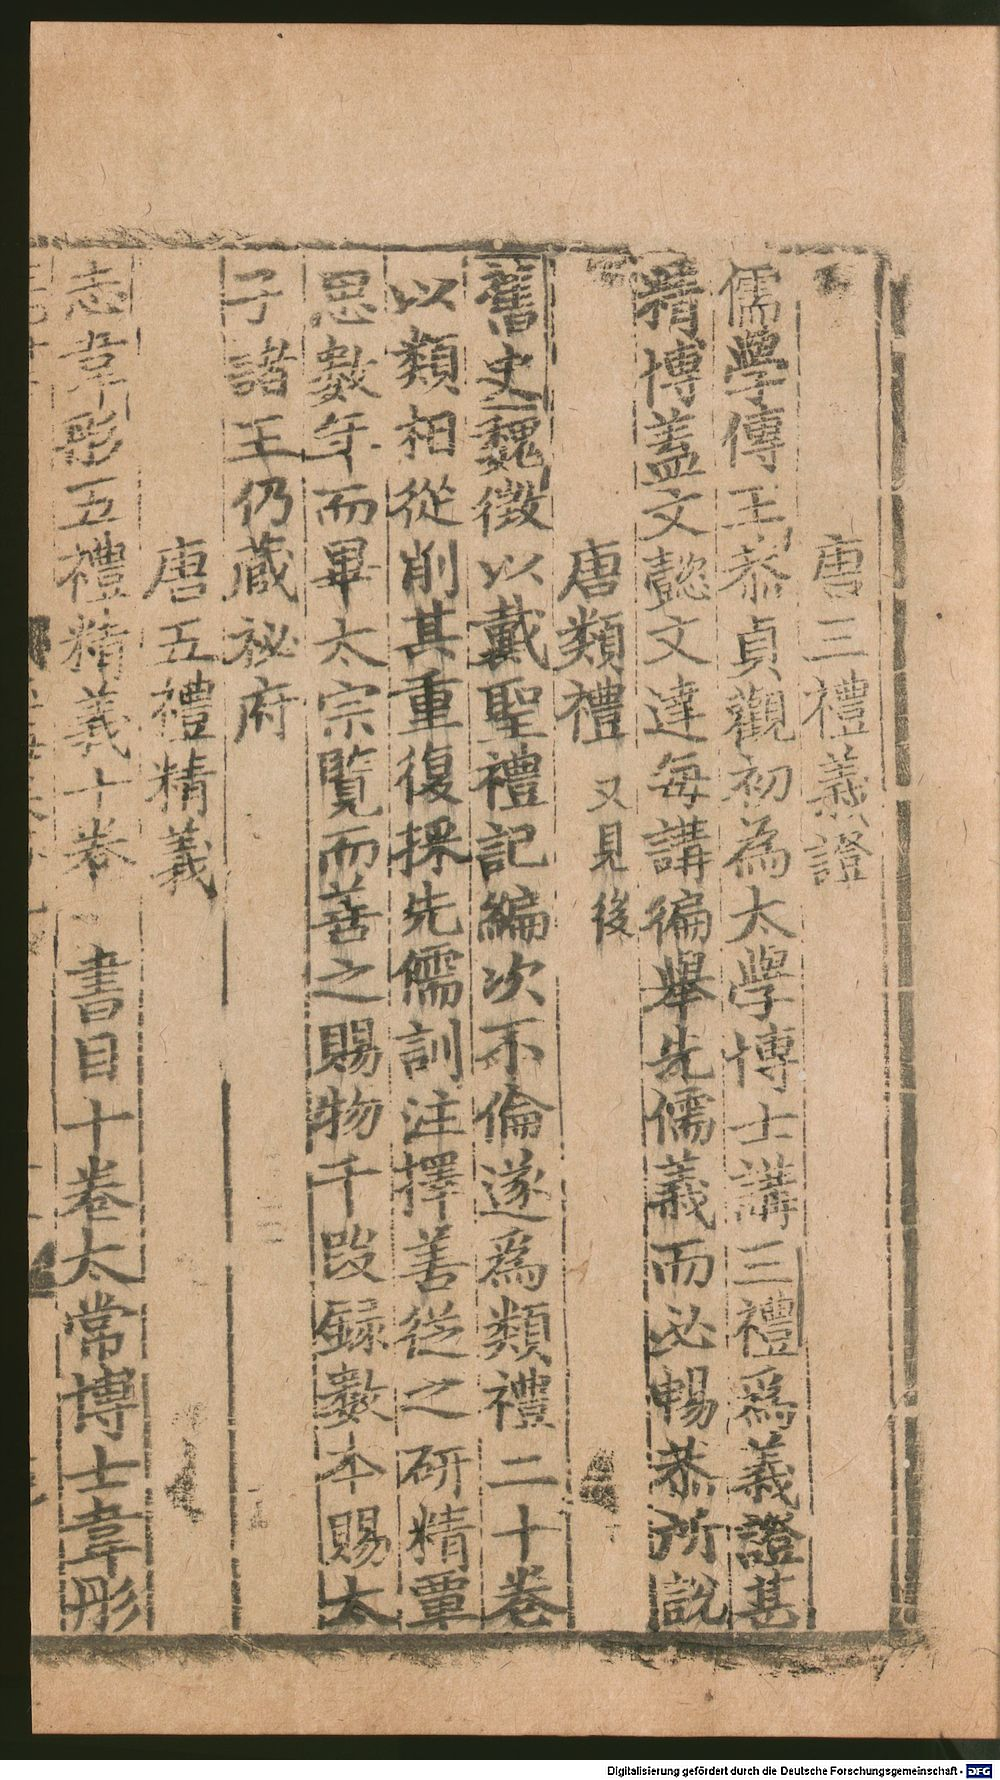 唐三禮義證
儒學傳王恭貞觀初為太學博士講三禮爲義證甚
精博蓋文懿文達每講徧舉先儒義而必暢恭所說
唐類禮 又見後
舊史魏徵以戴聖禮記編次不倫遂爲類禮二十卷
以類相從削其重復採先儒訓注擇善從之研精覃
思數年而畢太宗覽而善之賜物千段錄數本賜太
子諸王仍藏祕府
唐五禮精義
志韋彤五禮精義十卷 書目十卷太常博士韋彤
Digitalisierung gefördert durch die Deutsche Forschungsgemeinschaft - DFG